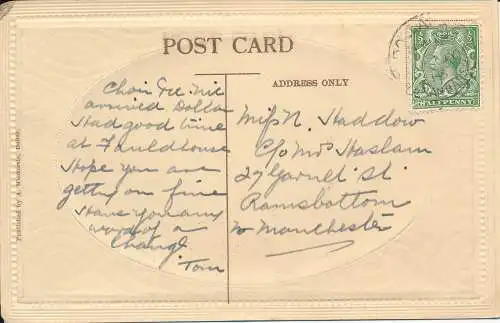 POST CARD
ADDRESS ONLY
HALFPENNY
arrived Dollar
Had good time
at Fauldhouse
Hope you are
getting on fine
Have you any
word of a
change
Tom
Miss N. Haddow
C/o Mrs Haslam
27 Garnet St
Ramsbottom
Nr Manchester
Published by A.